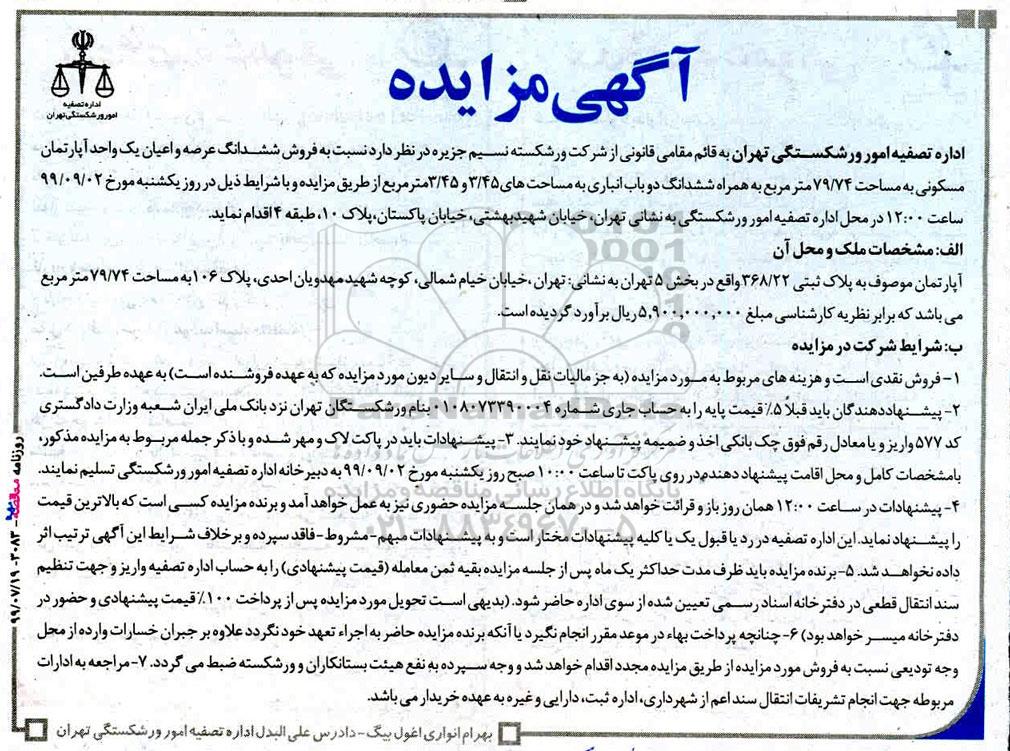 آگهی مزایده
اداره تصفیه
امور ورشکستگی تهران
اداره تصفیه امور ورشکستگی تهران به قائم مقامی قانونی از شرکت ورشکسته نسیم جزیره در نظر دارد نسبت به فروش ششدانگ عرصه و اعیان یک واحد آپارتمان
مسکونی به مساحت ۷۹/۷۴ متر مربع به همراه ششدانگ دو باب انباری به مساحت های ۳/۴۵ و ۳/۴۵ متر مربع از طریق مزایده و با شرایط ذیل در روز یکشنبه مورخ ۹۹/۰۹/۰۲
ساعت ۱۲:۰۰ در محل اداره تصفیه امور ورشکستگی به نشانی تهران، خیابان شهید بهشتی، خیابان پاکستان، پلاک ۱۰، طبقه ۴ اقدام نماید.
الف: مشخصات ملک و محل آن
آپارتمان موصوف به پلاک ثبتی ۳۶۸/۲۲ واقع در بخش ۵ تهران به نشانی: تهران، خیابان خیام شمالی، کوچه شهید مهدویان احدی، پلاک ۱۰۶ به مساحت ۷۹/۷۴ متر مربع
می باشد که برابر نظریه کارشناسی مبلغ ۵,۹۰۰,۰۰۰,۰۰۰ ریال برآورد گردیده است.
ب: شرایط شرکت در مزایده
۱- فروش نقدی است و هزینه های مربوط به مورد مزایده (به جز مالیات نقل و انتقال و سایر دیون مورد مزایده که به عهده فروشنده است) به عهده طرفین است.
۲- پیشنهاددهندگان باید قبلاً ۵٪ قیمت پایه را به حساب جاری شماره ۰۱۰۸۰۷۳۳۹۰۰۰۴ بنام ورشکستگان تهران نزد بانک ملی ایران شعبه وزارت دادگستری
کد ۵۷۷ واریز و یا معادل رقم فوق چک بانکی اخذ و ضمیمه پیشنهاد خود نمایند. ۳- پیشنهادات باید در پاکت لاک و مهر شده و با ذکر جمله مربوط به مزایده مذکور،
بامشخصات کامل و محل اقامت پیشنهاد دهنده در روی پاکت تا ساعت ۱۰:۰۰ صبح روز یکشنبه مورخ ۹۹/۰۹/۰۲ به دبیرخانه اداره تصفیه امور ورشکستگی تسلیم نمایند.
۴- پیشنهادات در ساعت ۱۲:۰۰ همان روز باز و قرائت خواهد شد و در همان جلسه مزایده حضوری نیز به عمل خواهد آمد و برنده مزایده کسی است که بالاترین قیمت
را پیشنهاد نماید. این اداره تصفیه در رد یا قبول یک یا کلیه پیشنهادات مختار است و به پیشنهادات مبهم-مشروط-فاقد سپرده و برخلاف شرایط این آگهی ترتیب اثر
داده نخواهد شد. ۵- برنده مزایده باید ظرف مدت حداکثر یک ماه پس از جلسه مزایده بقیه ثمن معامله (قیمت پیشنهادی) را به حساب اداره تصفیه واریز و جهت تنظیم
سند انتقال قطعی در دفترخانه اسناد رسمی تعیین شده از سوی اداره حاضر شود. (بدیهی است تحویل مورد مزایده پس از پرداخت ۱۰۰٪ قیمت پیشنهادی و حضور در
دفترخانه میسر خواهد بود) ۶- چنانچه پرداخت بهاء در موعد مقرر انجام نگیرد یا آنکه برنده مزایده حاضر به اجراء تعهد خود نگردد علاوه بر جبران خسارات وارده از محل
وجه تودیعی نسبت به فروش مورد مزایده از طریق مزایده مجدد اقدام خواهد شد و وجه سپرده به نفع هیئت بستانکاران و ورشکسته ضبط می گردد. ۷- مراجعه به ادارات
مربوطه جهت انجام تشریفات انتقال سند اعم از شهرداری، اداره ثبت، دارایی و غیره به عهده خریدار می باشد.
بهرام انواری اغول بیگ - دادرس علی البدل اداره تصفیه امور ورشکستگی تهران
روزنامه مناقصه مزایده - ۳۰۸۳ - ۹۹/۰۷/۱۹
پایگاه اطلاع رسانی مناقصه و مزایده
۰۲۱-۸۸۳۴۹۶۷۰-۵